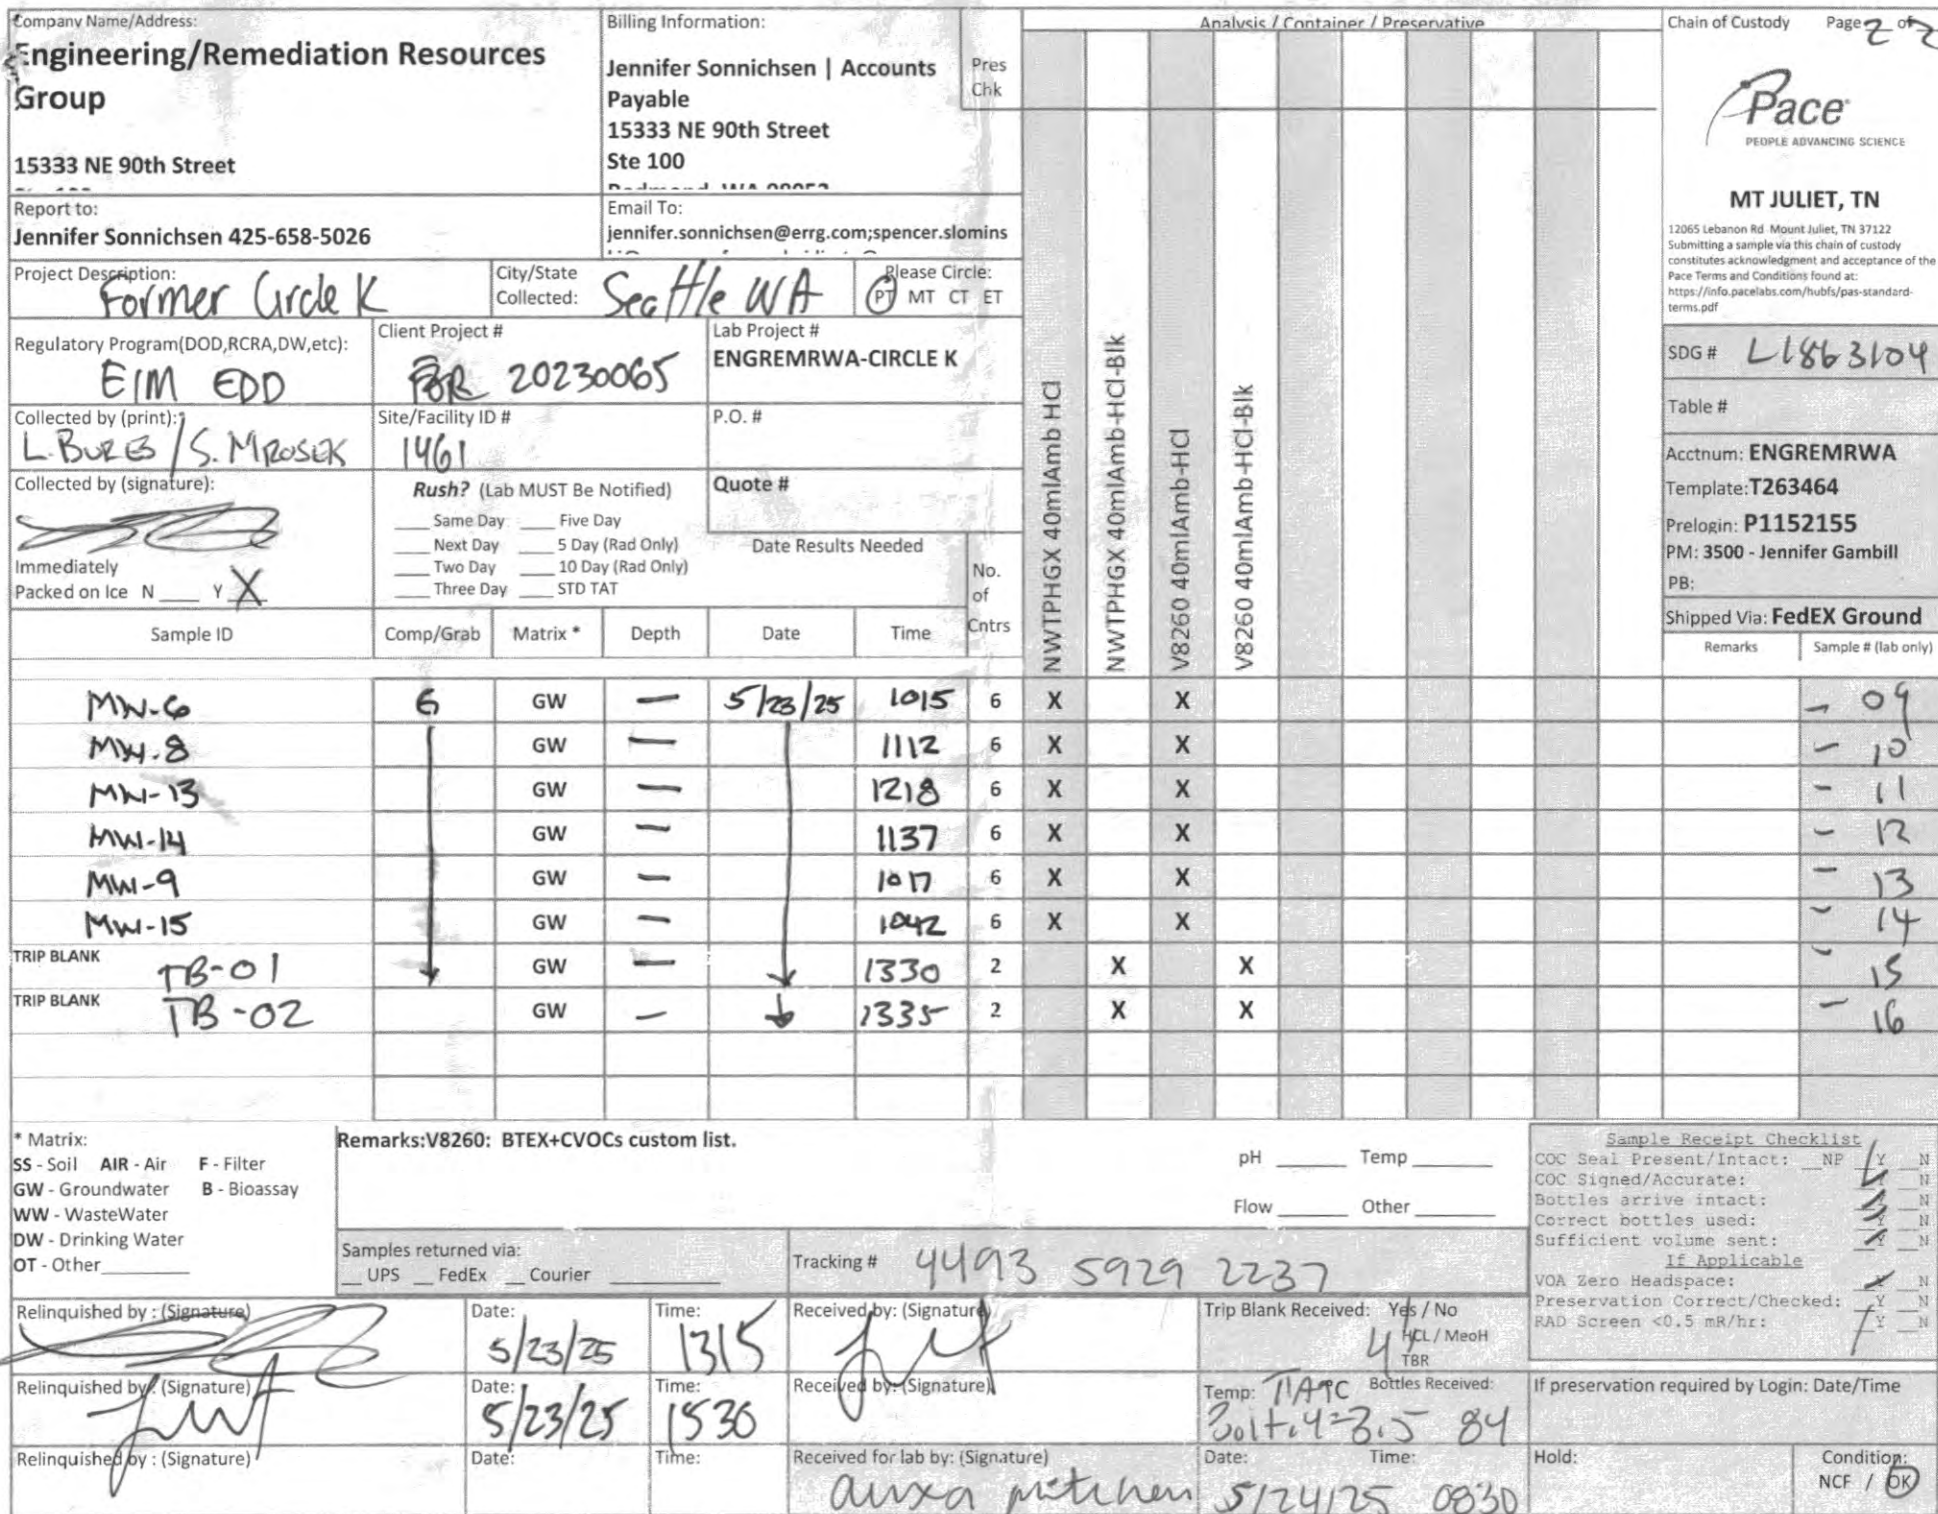 Company Name/Address:
Engineering/Remediation Resources
Group
15333 NE 90th Street
Billing Information:
Jennifer Sonnichsen | Accounts
Payable
15333 NE 90th Street
Ste 100
Pres
Chk
Analysis / Container / Preservative
Chain of Custody Page 2 of 2
Pace
PEOPLE ADVANCING SCIENCE
MT JULIET, TN
12065 Lebanon Rd Mount Juliet, TN 37122
Submitting a sample via this chain of custody
constitutes acknowledgment and acceptance of the
Pace Terms and Conditions found at:
https://info.pacelabs.com/hubfs/pas-standard-
terms.pdf
Report to:
Jennifer Sonnichsen 425-658-5026
Email To:
jennifer.sonnichsen@errg.com;spencer.slomins
Project Description:
Former Circle K
City/State
Collected: Seattle WA
Please Circle:
PT MT CT ET
Regulatory Program(DOD,RCRA,DW,etc):
EIM EDD
Client Project #
20230065
Lab Project #
ENGREMRWA-CIRCLE K
SDG # L1863104
Table #
Collected by (print):
L. BURES / S. MROSEK
Site/Facility ID #
1461
P.O. #
Acctnum: ENGREMRWA
Template:T263464
Prelogin: P1152155
PM: 3500 - Jennifer Gambill
PB:
Collected by (signature):
Rush? (Lab MUST Be Notified)
___ Same Day ___ Five Day
___ Next Day ___ 5 Day (Rad Only)
___ Two Day ___ 10 Day (Rad Only)
___ Three Day ___ STD TAT
Quote #
Date Results Needed
Immediately
Packed on Ice N ___ Y X
No.
of
Cntrs
NWTPHGX 40mlAmb HCl
NWTPHGX 40mlAmb-HCl-Blk
V8260 40mlAmb-HCl
V8260 40mlAmb-HCl-Blk
Shipped Via: FedEX Ground
Sample ID Comp/Grab Matrix * Depth Date Time Remarks Sample # (lab only)
MW-6 G GW — 5/23/25 1015 6 X X - 09
MW-8 GW — 1112 6 X X - 10
MW-13 GW — 1218 6 X X - 11
MW-14 GW — 1137 6 X X - 12
MW-9 GW — 1017 6 X X - 13
MW-15 GW — 1042 6 X X - 14
TRIP BLANK TB-01 GW — 1330 2 X X - 15
TRIP BLANK TB-02 GW — 1335 2 X X - 16
* Matrix:
SS - Soil AIR - Air F - Filter
GW - Groundwater B - Bioassay
WW - WasteWater
DW - Drinking Water
OT - Other
Remarks:V8260: BTEX+CVOCs custom list.
pH ___ Temp ___
Flow ___ Other ___
Sample Receipt Checklist
COC Seal Present/Intact: __NP __Y __N
COC Signed/Accurate: __Y __N
Bottles arrive intact: __Y __N
Correct bottles used: __Y __N
Sufficient volume sent: __Y __N
If Applicable
VOA Zero Headspace: __Y __N
Preservation Correct/Checked: __Y __N
RAD Screen <0.5 mR/hr: __Y __N
Samples returned via:
__ UPS __ FedEx __ Courier
Tracking # 4493 5929 2237
Relinquished by : (Signature)
Date: 5/23/25
Time: 1315
Received by: (Signature)
Trip Blank Received: Yes / No
4 HCL / MeoH
TBR
Relinquished by : (Signature)
Date: 5/23/25
Time: 1530
Received by: (Signature)
Temp: °C Bottles Received:
84
If preservation required by Login: Date/Time
Relinquished by : (Signature)
Date:
Time:
Received for lab by: (Signature)
Date: 5/24/25
Time: 0830
Hold:
Condition:
NCF / OK